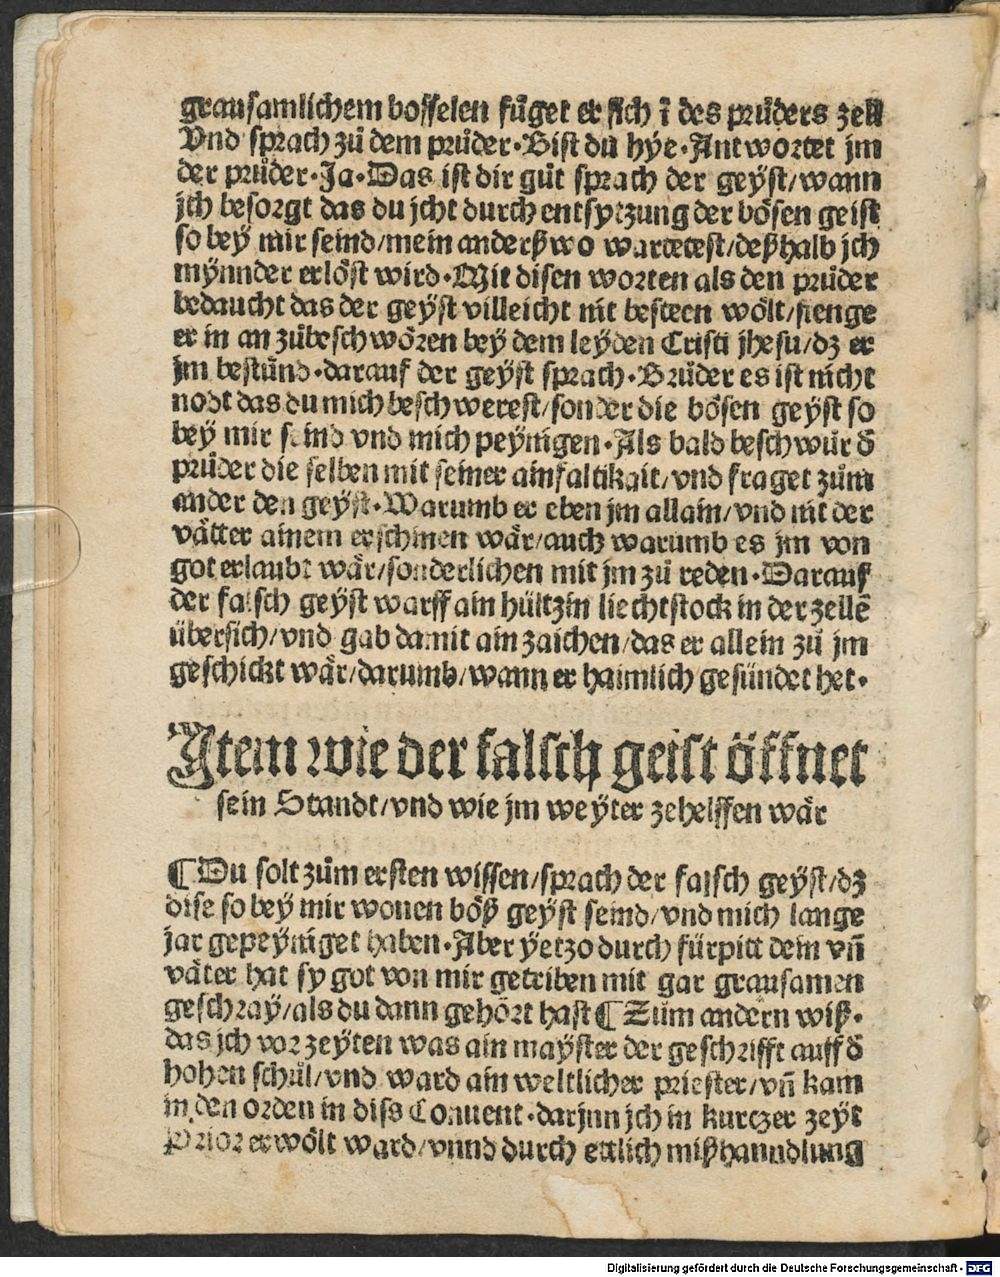 grausamlichem bosselen fůget er sich ī des průders zell
Vnd sprach zů dem průder·Bist du hye·Antwortet jm
der průder·Ja·Das ist dir gůt sprach der geÿst/wann
jch besorgt das du jcht durch entsytzung der bösen geist
so beÿ mir seind/mein anderßwo wartetest/deßhalb jch
mÿnnder erlöst wird·Mit disen worten als den průder
bedaucht das der geÿst villeicht nit besteen wölt/fienge
er in an zůbeschwören beÿ dem leÿden Cristi jhesu/dz er
jm bestůnd·darauf der geÿst sprach·Brůder es ist nicht
nodt das du mich beschwerest/sonder die bösen geÿst so
beÿ mir seind vnd mich peÿnigen·Als bald beschwůr d̄
průder die selben mit seiner ainfaltikait/vnd fraget zům
ander den geÿst·Warumb er eben jm allain/vnd nit der
vätter ainem erschinen wär/auch warumb es jm von
got erlaubt wär/sonderlichen mit jm zů reden·Darauf
der falsch geÿst warff ain hültzin liechtstock in der zellē
übersich/vnd gab damit ain zaichen/das er allein zů jm
geschickt wär/darumb/wann er haimlich gesündet het·
Ytem wie der falsch geist öffnet
sein Standt/vnd wie jm weÿter zehelffen wär
¶Du solt zům ersten wissen/sprach der falsch geÿst/dz
dise so beÿ mir wonen böß geÿst seind/vnd mich lange
jar gepeÿniget haben·Aber ÿetzo durch fürpitt dein vn̄
väter hat sy got von mir getriben mit gar grausamen
geschraÿ/als du dann gehört hast¶Zům andern wiß·
das jch vor zeÿten was ain maÿster der geschrifft auff d̄
hohen schůl/vnd ward ain weltlicher priester/vn̄ kam
in den orden in diss Conuent·darjnn jch in kurtzer zeÿt
Prior erwölt ward/vnnd durch ettlich mißhanndlung
Digitalisierung gefördert durch die Deutsche Forschungsgemeinschaft - DFG